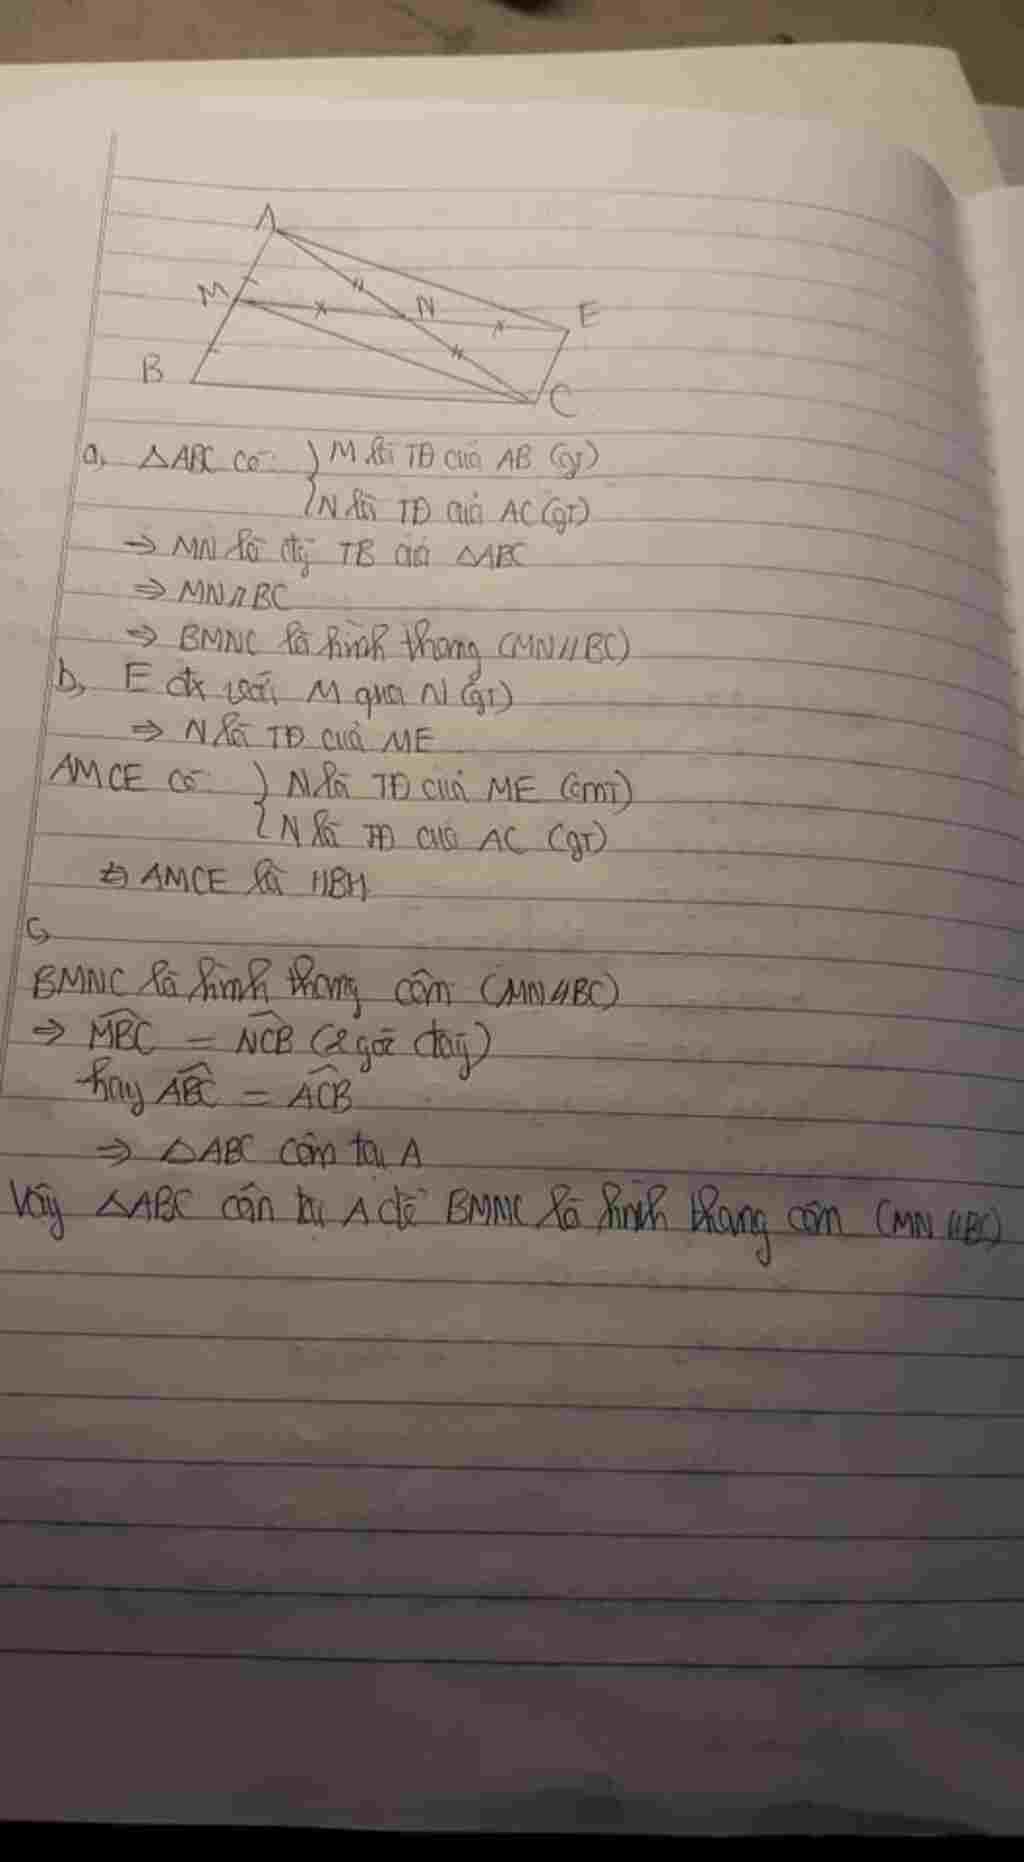 A
M
N
E
B
C
a, △ABC có } M là TĐ của AB (gt)
{ N là TĐ của AC (gt)
⇒ MN là đg TB của △ABC
⇒ MN//BC
⇒ BMNC là hình thang (MN//BC)
b, E đx với M qua N (gt)
⇒ N là TĐ của ME
AMCE có } N là TĐ của ME (cmt)
{ N là TĐ của AC (gt)
⇒ AMCE là HBH
c,
BMNC là hình thang cân (MN//BC)
⇒ MBC = NCB (2 góc đáy)
hay ABC = ACB
⇒ △ABC cân tại A
Vậy △ABC cân tại A để BMNC là hình thang cân (MN//BC)